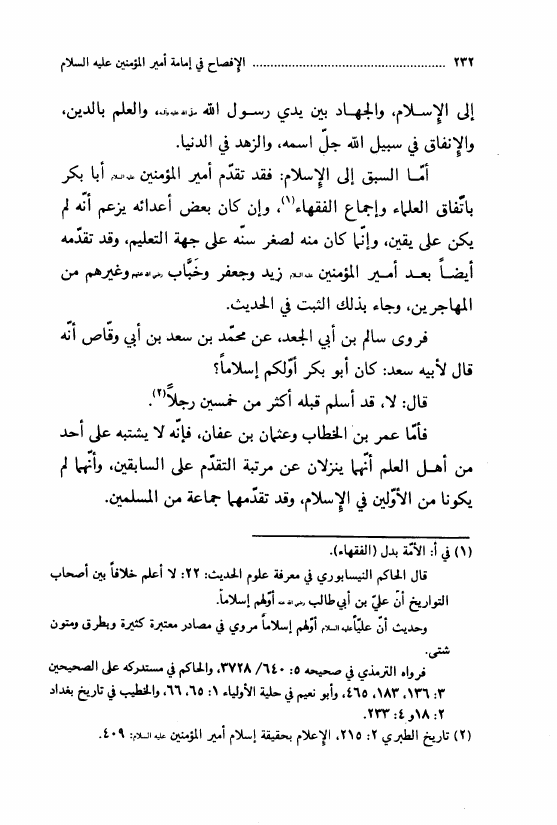 ٢٣٢ ........................................................ الإفصاح في إمامة أمير المؤمنين عليه السلام
إلى الإسـلام، والجهـاد بين يدي رسـول الله صلى الله عليه وآله، والعلم بالدين،
والإنفاق في سبيل الله جلّ اسمه، والزهد في الدنيا.
أمّـا السبق إلى الإسلام: فقد تقدّم أمير المؤمنين عليه السلام أبا بكر
باتّفاق العلماء وإجماع الفقهاء(١)، وإن كان بعض أعدائه يزعم أنّه لم
يكن على يقين، وإنّما كان منه لصغر سنّه على جهة التعليم، وقد تقدّمه
أيضـاً بعـد أمـير المؤمنين عليه السلام زيد وجعفر وخَبَّاب رضي الله عنهم وغيرهم من
المهاجرين، وجاء بذلك الثبت في الحديث.
فروى سالم بن أبي الجعد، عن محمّد بن سعد بن أبي وقّاص أنّه
قال لأبيه سعد: كان أبو بكر أوّلكم إسلاماً؟
قال: لا، قد أسلم قبله أكثر من خمسين رجلاً(٢).
فأمّا عمر بن الخطاب وعثمان بن عفان، فإنّه لا يشتبه على أحد
من أهـل العلم أنّهما ينزلان عن مرتبة التقدّم على السابقين، وأنّهما لم
يكونا من الأوّلين في الإسلام، وقد تقدّمهما جماعة من المسلمين.
(١) في أ: الأمّة بدل (الفقهاء).
قال الحاكم النيسابوري في معرفة علوم الحديث: ٢٢: لا أعلم خلافاً بين أصحاب
التواريخ أنّ عليّ بن أبي طالب رضي الله عنه أوّلهم إسلاماً.
وحديث أنّ عليّاً عليه السلام أوّلهم إسلاماً مروي في مصادر معتبرة كثيرة وبطرق ومتون
شتى.
فرواه الترمذي في صحيحه ٥: ٦٤٠/ ٣٧٢٨، والحاكم في مستدركه على الصحيحين
٣: ١٣٦، ١٨٣، ٤٦٥، وأبو نعيم في حلية الأولياء ١: ٦٥، ٦٦، والخطيب في تاريخ بغداد
٢: ١٨ و ٤: ٢٣٣.
(٢) تاريخ الطبري ٢: ٢١٥، الإعلام بحقيقة إسلام أمير المؤمنين عليه السلام: ٤٠٩.